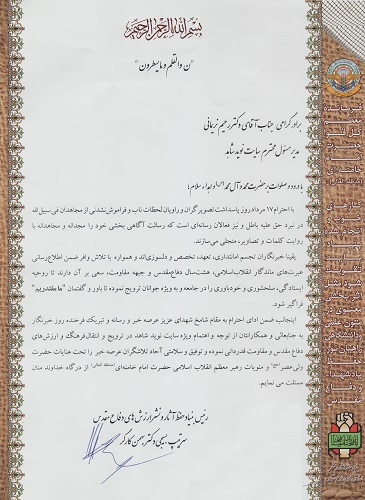 بسم الله الرحمن الرحیم
"ن والقلم و مایسطرون"
برادر گرامی جناب آقای دکتر رحیم نریمانی
مدیر مسئول محترم سایت نوید شاهد
با درود و صلوات بر حضرت محمد و آل محمد و اهداء سلام؛
با احترام ۱۷ مرداد روز پاسداشت تصویرگران و راویان لحظات ناب و فراموش نشدنی از مجاهدان فی سبیل الله
در نبرد حق علیه باطل و نیز فعالان رسانه‌ای است که رسالت آگاهی بخشی خود را مجدانه و مجاهدانه با
روایت کلمات و تصاویر، متجلی می‌سازند.
یقینا خبرنگاران تجسم امانتداری، تعهد، تخصص و دلسوزی‌اند و همواره با تلاش وافر ضمن اطلاع‌رسانی
عبرت‌های ماندگار انقلاب‌اسلامی، هشت‌سال دفاع‌مقدس و جبهه مقاومت، سعی بر آن دارند تا روحیه
ایستادگی، سلحشوری و خودباوری را در جامعه و به ویژه جوانان ترویج نموده تا باور و گفتمان "ما مقتدریم"
فراگیر شود.
اینجانب ضمن ادای احترام به مقام شامخ شهدای عزیز عرصه خبر و رسانه و تبریک فرخنده روز خبرنگار
به جنابعالی و همکارانتان از توجه و اهتمام ویژه سایت نوید شاهد در ترویج و انتقال فرهنگ و ارزش‌های
دفاع مقدس و مقاومت قدردانی نموده و توفیق و سلامتی آحاد تلاشگران عرصه خبر را تحت عنایات حضرت
ولی‌عصر (عج) و منویات رهبر معظم انقلاب اسلامی حضرت امام خامنه‌ای (مدظله العالی) از درگاه خداوند منان
مسئلت می نمایم.
رئیس بنیاد حفظ آثار و نشر ارزش های دفاع مقدس
سرتیپ بسیجی دکتر بهمن کارگر